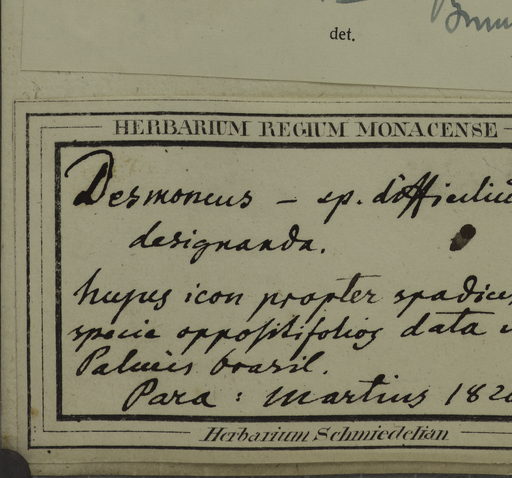 det.
HERBARIUM REGIUM MONACENSE
Desmoncus – sp. difficiliu
designanda.
hujus icon propter spadices
specie oppositifolios data
Palmis brasil.
Para: Martius 182
Herbarium Schmiedelian